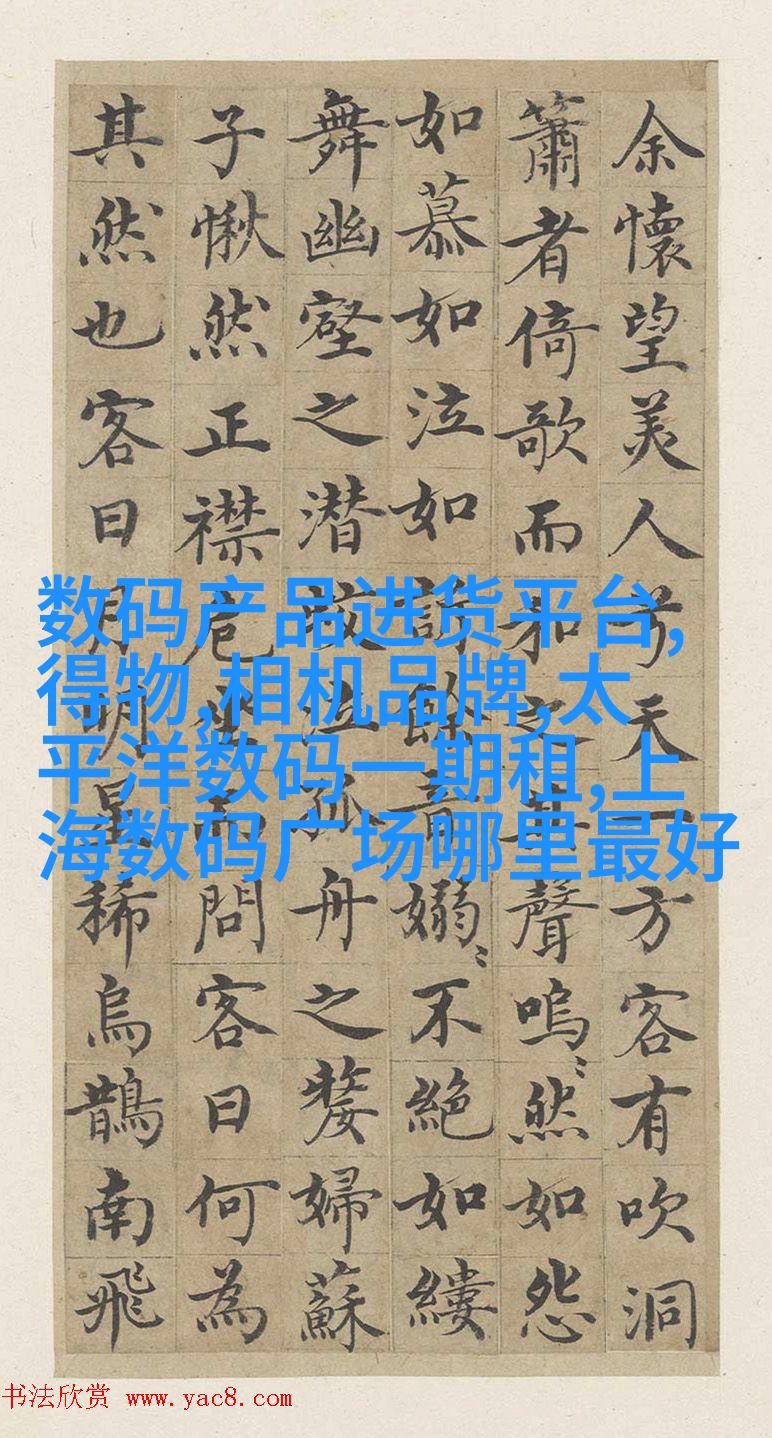 余懷望美人兮天一方客有吹洞
簫者倚歌而和之其聲嗚〻然如怨
如慕如泣如訴餘音嫋〻不絕如縷
舞幽壑之潜蛟泣孤舟之嫠婦蘇
子愀然正襟危坐而問客曰何為
其然也客曰月明星稀烏鵲南飛
数码产品进货平台,
得物,相机品牌,太
平洋数码一期和,上
海数码广场哪里最好
书法欣赏 www.yac8.com